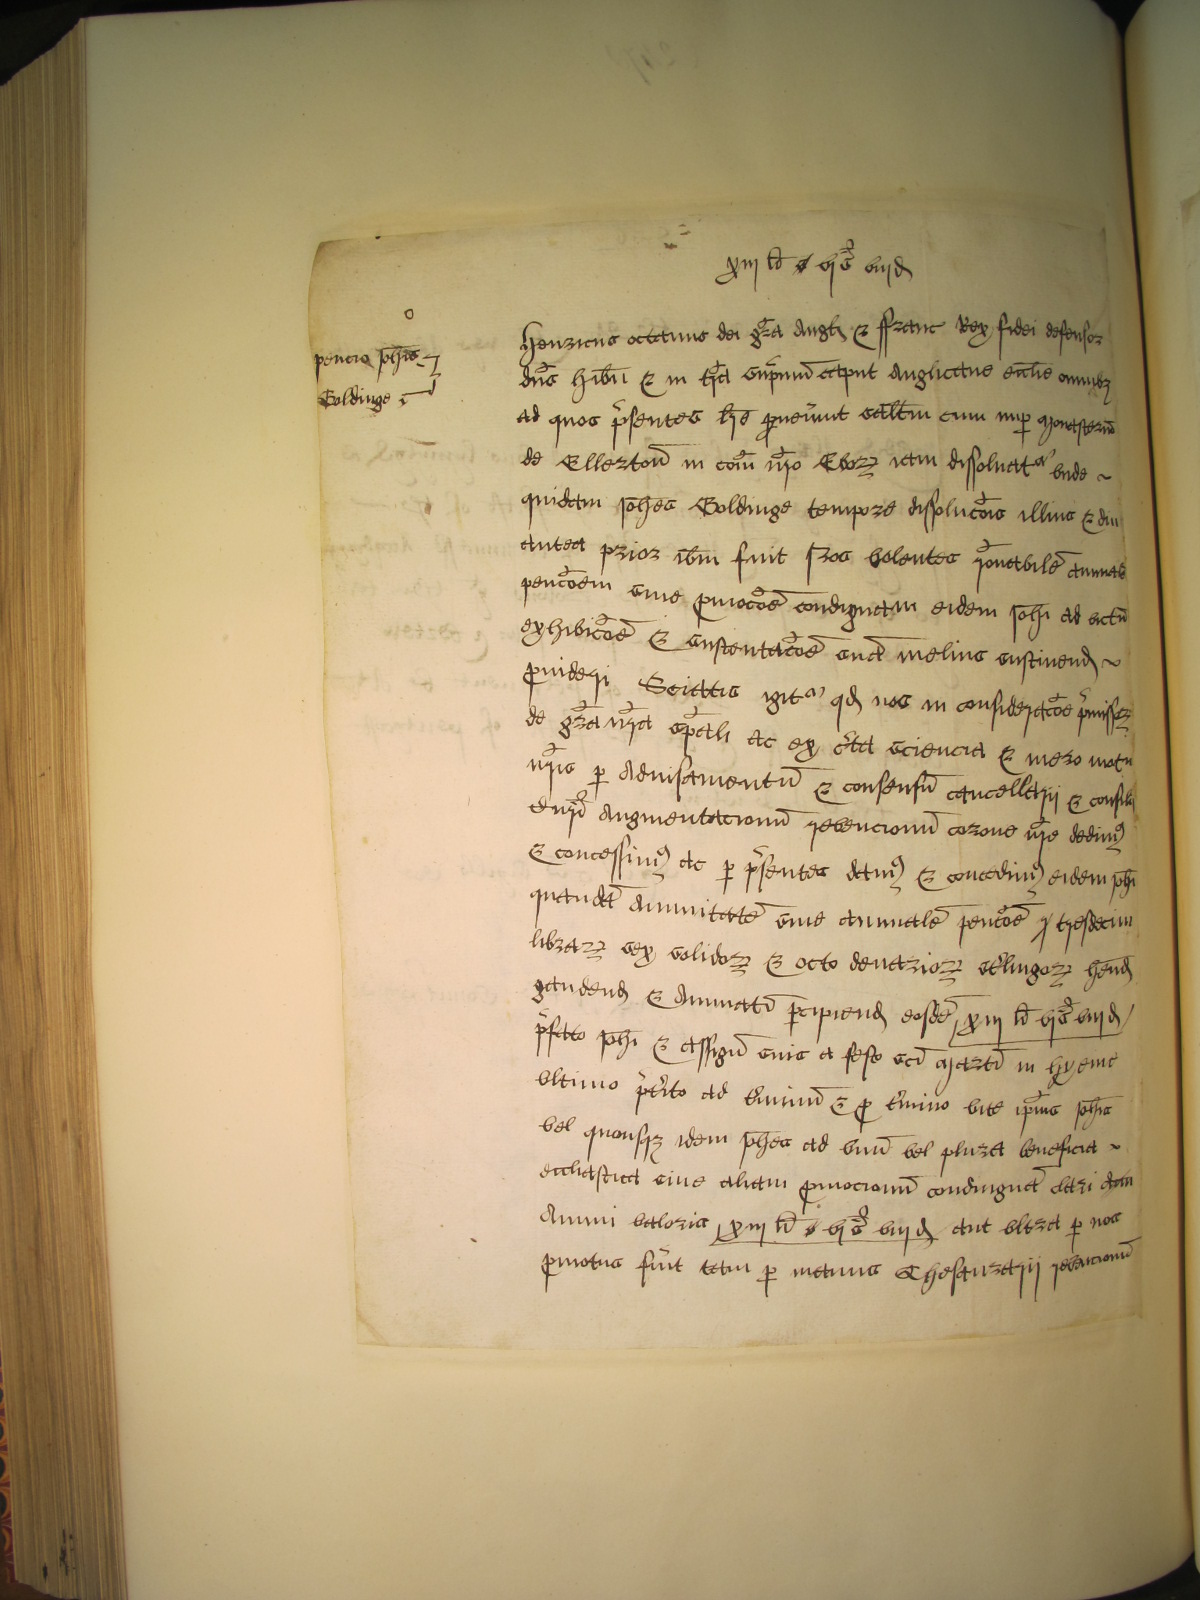 xiij li vjs viijd
pencio Johis
Goldinge
Henricus octauus dei gra Angl & ffranc Rex fidei defensor
dns Hibn & in tra supremu caput Anglicane ecclie omnibz
ad quos psentes lre pueniunt saltm cum nup Monasteriu
de Ellerton in com nro Eboz iam dissoluat' vnde
quidam Johes Goldinge tempore dissolucois illius & diu
antea prior ibm fuit Nos volentes ronabile annuale
pencoem siue pmocoe condignam eidem Johi ad victu
exhibicoe & sustentacoe sua melius sustinend
prouideri Sciatis igit' qd nos in consideracoe pmissoz
de gra nra spali ac ex cta sciencia & mero motu
nris p aduisamentu & consensu cancellarij & consilij
Curie Augmentacionu reuencionu corone nre dedim9
& concessim9 ac p psentes dam9 & concedim9 eidem Johi
quanda Annuitate siue annuale pencoe tresdecim
libraz sex solidoz & octo denarioz stlingoz hend
gaudend & Annuati pcipiend eosde xiij li vjs viijd
pfato Johi & assign suis a festo sci Marti in hyeme
vltimo ptito ad tminu & p tmino vite ipius Johis
vel quousqz idem Johes ad vnu vel plura beneficia
eccliastica siue aliam pmocionu condingna clari
Annui valoris xiij li vjs viijd aut vltra p nos
pmotus fuit tam p manus Thesaurarij reuencionu